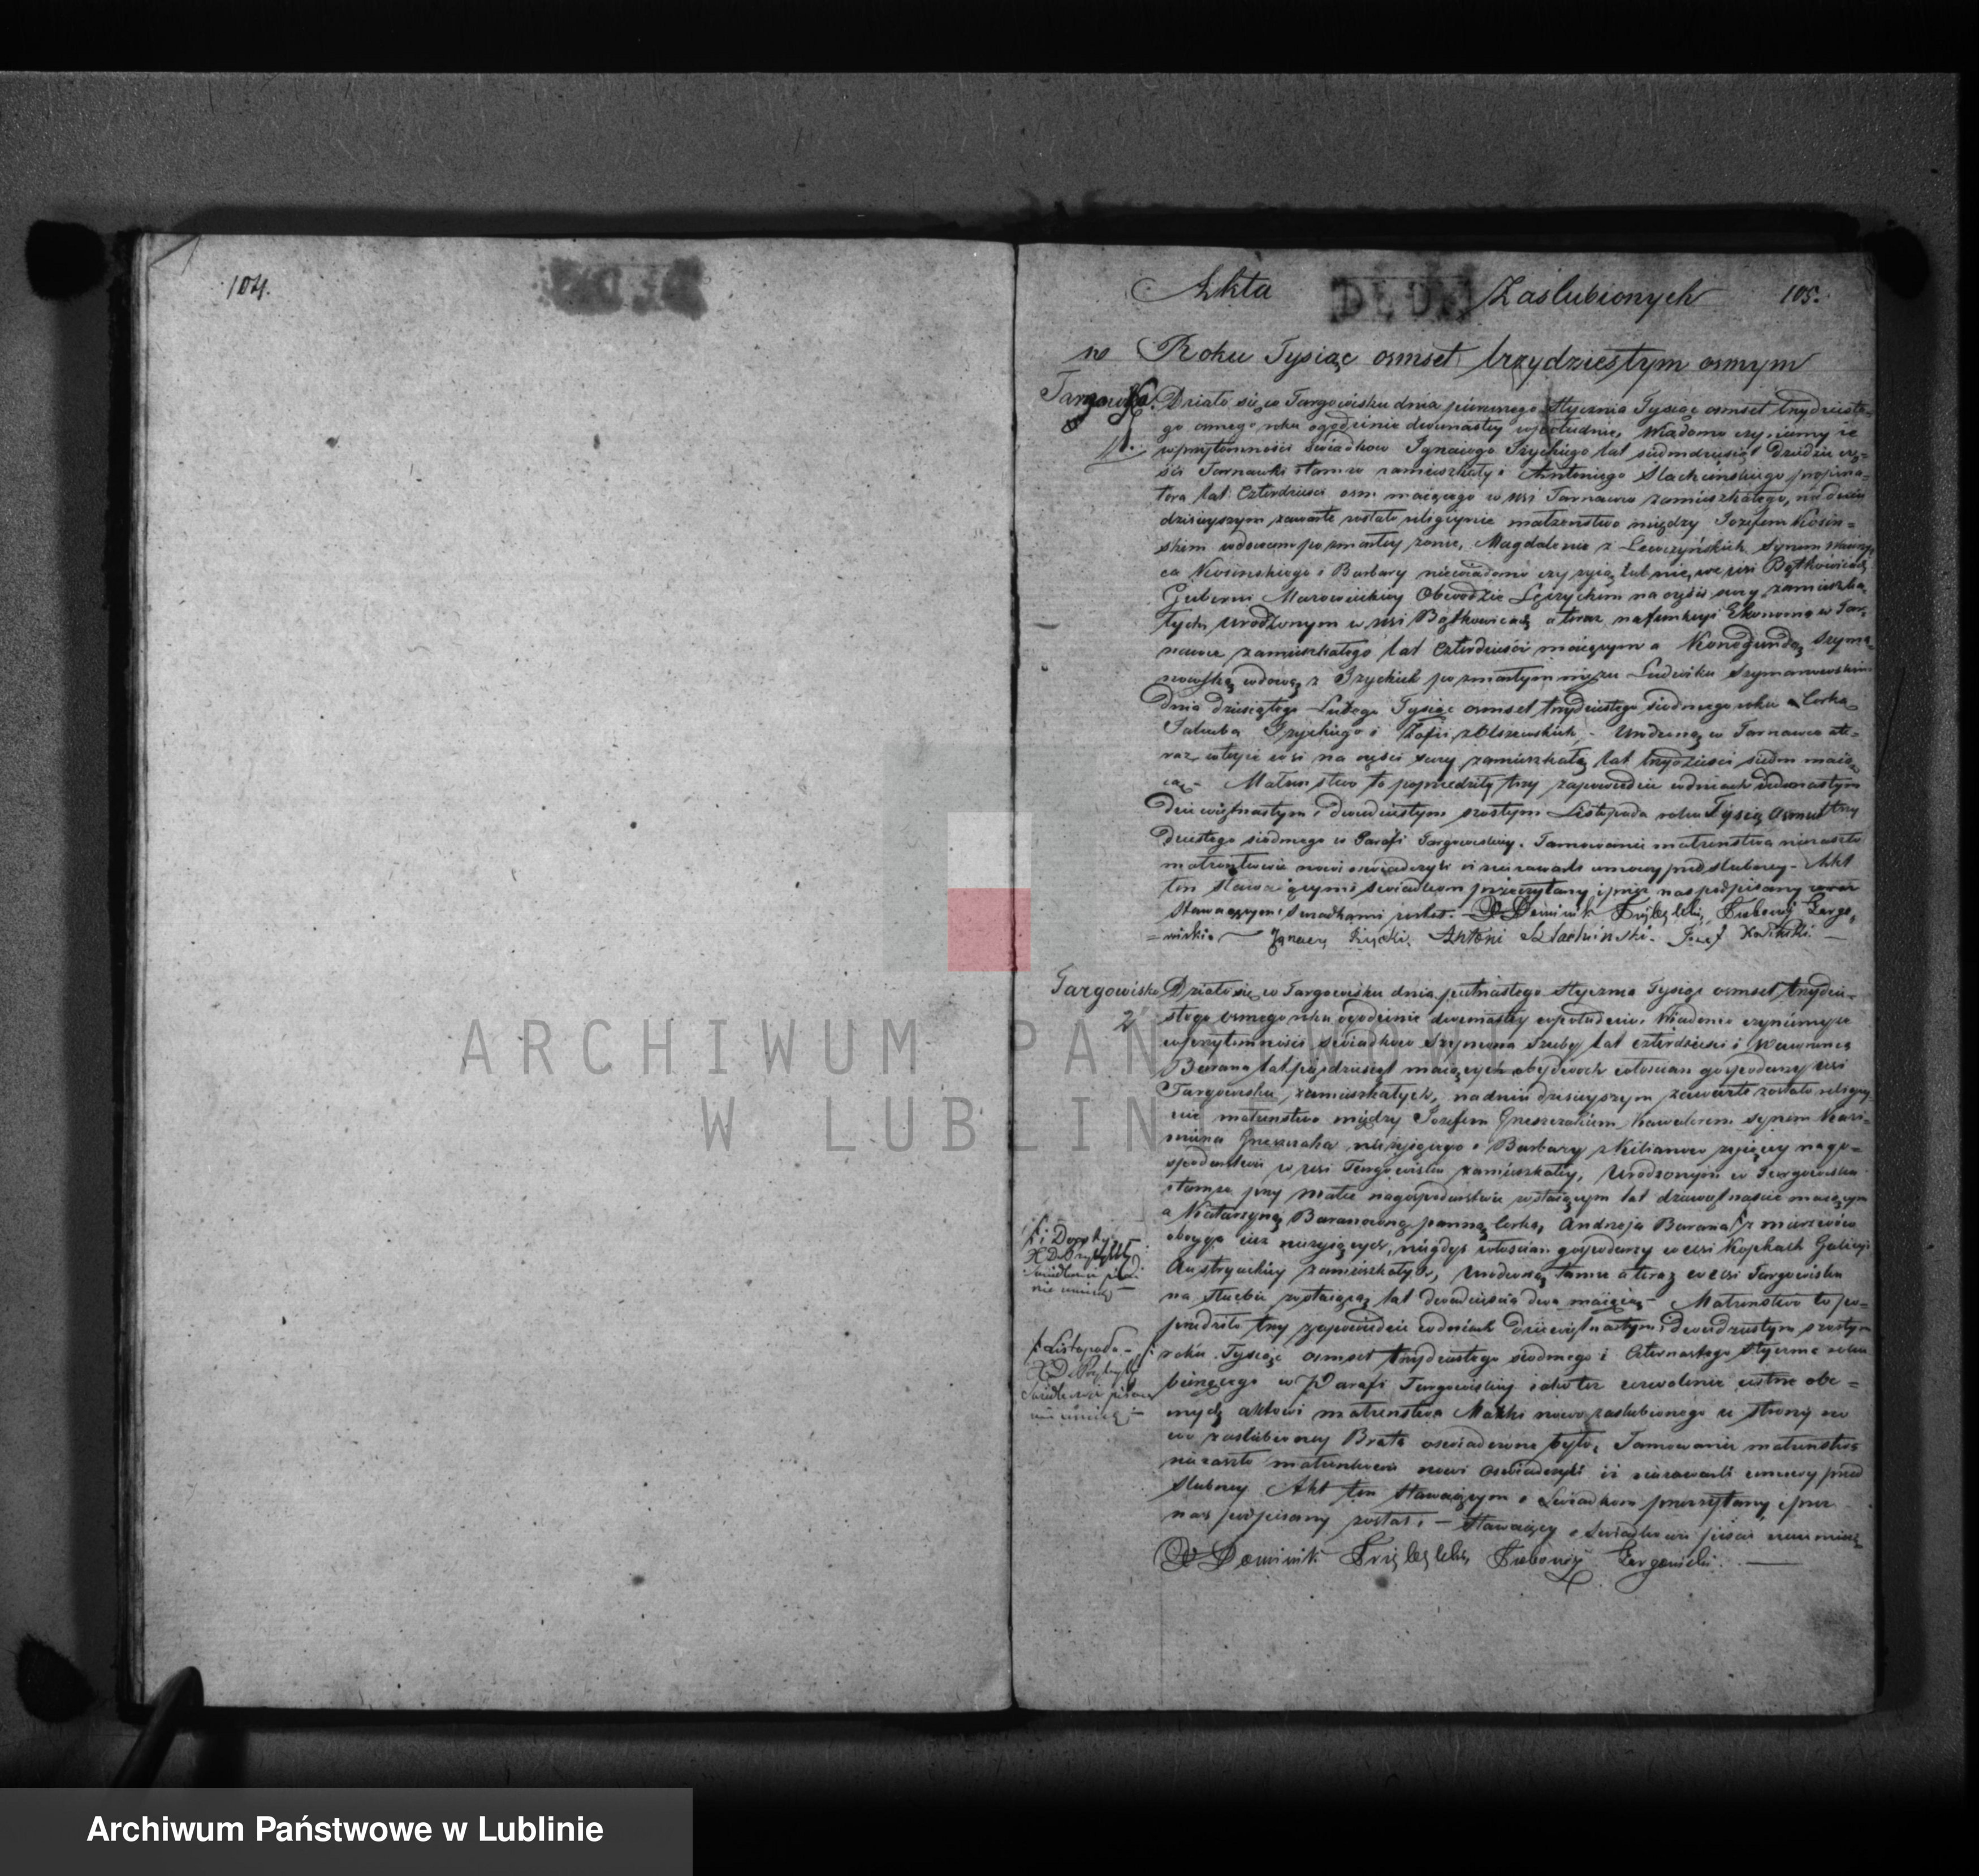 104.
DUDA
Akta Zaslubionych 105.
w Roku Tysiąc osmset trzydziestym osmym
Działo się w Targowisku dnia pierwszego Stycznia Tysiąc osmset trzydzieste-
go osmego roku o godzinie dwunastey w południe, Wiadomo czyniemy że
w przytomności Swiadkow Ignacego Iżyckiego lat siedmdziesiąt
Tarnawki tamże zamieszkały i Antoniego Stachurskiego
tora lat Czterdzieści osm maiącego w wsi Tarnawce zamieszkałego, na dniu
dzisieyszym zawarte zostało religiynie małżenstwo między Jozefem Kosin-
skim wdowcem po zmarłey żonie, Magdalenie z Synem
ca Kosinskiego i Barbary niewiadomo czy żyią lub nie, we wsi Bątkowicach
Guberni Mazowieckiey Obwodzie Łęczyckim na części swey zamieszka-
łych, urodzonym w wsi Bątkowicach a teraz na funkcyi Ekonoma w Tar-
nawce zamieszkałego lat Czterdzieści maiącym a Konegundą Szyma-
nowską wdową z Iżyckich po zmarłym mężu Ludwiku Szymanowskim
Dnia dziesiątego Lutego Tysiąc osmset trzydziestego siodmego roku Corką
Jakuba Iżyckiego i Zofii z Olszewskich, Urodzoną w Tarnawce a te-
raz w teyże wsi na części swey zamieszkałą lat trzydzieści siedm maią-
cą - Małżenstwo to poprzedziły trzy zapowiedzie w dniach dwunastym
Dziewiętnastym i dwudziestym szostym Listopada roku Tysiąc Osmset trzy
dziestego siodmego w Parafi Targowiskiey. Tamowanie małżenstwa niezaszło
małżonkowie nowi oswiadczyli iż niezawarli umowy przedslubney - Akt
ten stawaiącym i swiadkom przeczytany i przez nas podpisany
Stawaiącym i Swiadkami został. X Dominik Pleban Targo-
wiski Ignacy Iżycki, Antoni Jozef Kosiński
Targowisko
2
Działo się w Targowisku dnia piętnastego Stycznia Tysiąc osmset trzydzie-
stego osmego roku o godzinie dwunastey w południe, Wiadomo czyniemy że
w przytomności Swiadkow Szymona lat czterdzieści i Wawrzenca
Barana lat pięcdziesiąt maiących obydwoch włoscian gospodarzy wsi
Targowisku zamieszkałych, na dniu dzisieyszym zawarte zostało religiy-
nie małżenstwo między Jozefem Grzeszczakiem Kawalerem synem Kazi-
mierza Grzeszczaka nieżyiącego i Barbary z Kilianow żyiącey na go-
spodarstwie w wsi Targowisku zamieszkałey, Urodzonym w Targowisku
i tamże przy Matce na gospodarstwie zostaiącym lat dziewiętnascie maiącym
a Katarzyną Baranowną panną Corką Andrzeja Barana
oboyga iuż nieżyiących, niegdyś włoscian gospodarzy w wsi Kopkach Galicyi
Austryackiey zamieszkałych, Urodzoną tamże a teraz w wsi Targowisku
na służbie zostaiącą lat dwadziescia dwa maiącą - Małżenstwo to po-
przedziło trzy zapowiedzie w dniach Dziewiętnastym i dwudziestym szostym
roku Tysiąc osmset trzydziestego siodmego i Czternastego Stycznia roku
bieżącego w Parafi Targowiskiey iako też zezwolenie ustne obe-
cnych aktowi małżenstwa Matki nowo zaslubionego z strony no-
wo zaslubioney Brata oswiadczone było, Tamowanie małżenstwa
niezaszło małżonkowie nowi Oswiadczyli iż niezawarli umowy przed
slubney Akt ten Stawaiącym i Swiadkom przeczytany i przez
nas podpisany został, - Stawaiący i Swiadkowie pisać nieumieią
X Dominik Pleban Targowiski.
i Doroty
pisać
nie umieią
Listopada
Swiadkowie pisać
nie umieią
ARCHIWUM PAŃSTWOWE
W LUBLINIE
Archiwum Państwowe w Lublinie